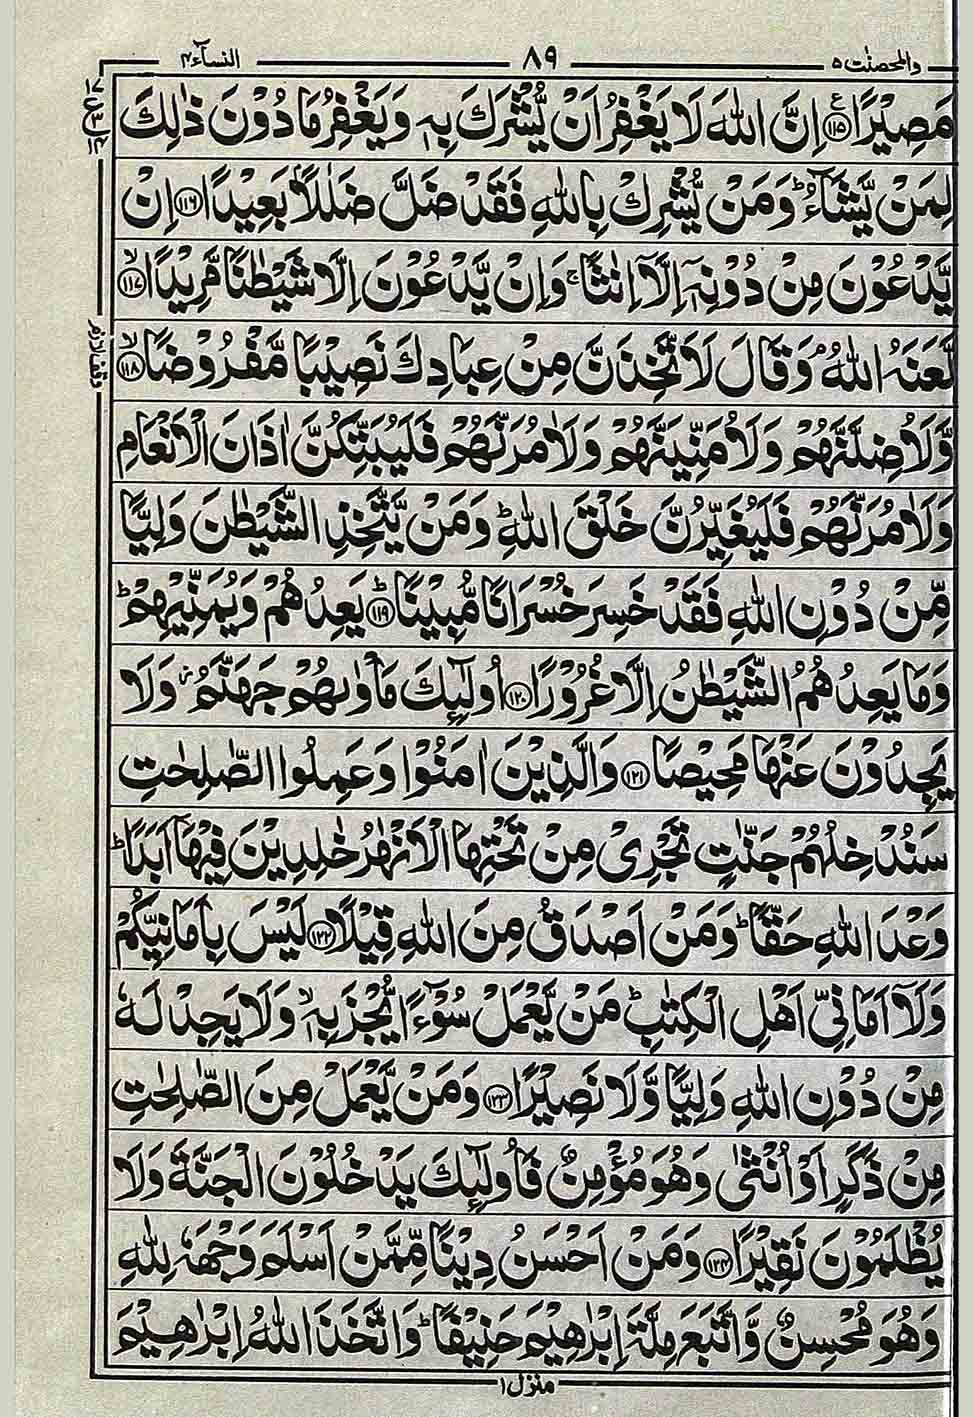 والمحصنت ٥ ٨٩ النسآء ٤
مَصِيْرًا ﴿١١٥﴾ ع اِنَّ اللّٰهَ لَا يَغْفِرُ اَنْ يُّشْرَكَ بِهٖ وَيَغْفِرُ مَا دُوْنَ ذٰلِكَ
لِمَنْ يَّشَآءُ ؕ وَمَنْ يُّشْرِكْ بِاللّٰهِ فَقَدْ ضَلَّ ضَلٰلًاۢ بَعِيْدًا ﴿١١٦﴾ اِنْ
يَّدْعُوْنَ مِنْ دُوْنِهٖۤ اِلَّاۤ اِنٰثًا ۚ وَاِنْ يَّدْعُوْنَ اِلَّا شَيْطٰنًا مَّرِيْدًا ۙ﴿١١٧﴾
لَّعَنَهُ اللّٰهُ ۘ وَقَالَ لَاَتَّخِذَنَّ مِنْ عِبَادِكَ نَصِيْبًا مَّفْرُوْضًا ۙ﴿١١٨﴾
وَّلَاُضِلَّنَّهُمْ وَلَاُمَنِّيَنَّهُمْ وَلَاٰمُرَنَّهُمْ فَلَيُبَتِّكُنَّ اٰذَانَ الْاَنْعَامِ
وَلَاٰمُرَنَّهُمْ فَلَيُغَيِّرُنَّ خَلْقَ اللّٰهِ ؕ وَمَنْ يَّتَّخِذِ الشَّيْطٰنَ وَلِيًّا
مِّنْ دُوْنِ اللّٰهِ فَقَدْ خَسِرَ خُسْرَانًا مُّبِيْنًا ؕ﴿١١٩﴾ يَعِدُهُمْ وَيُمَنِّيْهِمْ ؕ
وَمَا يَعِدُهُمُ الشَّيْطٰنُ اِلَّا غُرُوْرًا ﴿١٢٠﴾ اُولٰٓئِكَ مَاْوٰىهُمْ جَهَنَّمُ ؗ وَلَا
يَجِدُوْنَ عَنْهَا مَحِيْصًا ﴿١٢١﴾ وَالَّذِيْنَ اٰمَنُوْا وَعَمِلُوا الصّٰلِحٰتِ
سَنُدْخِلُهُمْ جَنّٰتٍ تَجْرِيْ مِنْ تَحْتِهَا الْاَنْهٰرُ خٰلِدِيْنَ فِيْهَاۤ اَبَدًا ؕ
وَعْدَ اللّٰهِ حَقًّا ؕ وَمَنْ اَصْدَقُ مِنَ اللّٰهِ قِيْلًا ﴿١٢٢﴾ لَيْسَ بِاَمَانِيِّكُمْ
وَلَاۤ اَمَانِيِّ اَهْلِ الْكِتٰبِ ؕ مَنْ يَّعْمَلْ سُوْٓءًا يُّجْزَ بِهٖ ۙ وَلَا يَجِدْ لَهٗ
مِنْ دُوْنِ اللّٰهِ وَلِيًّا وَّلَا نَصِيْرًا ﴿١٢٣﴾ وَمَنْ يَّعْمَلْ مِنَ الصّٰلِحٰتِ
مِنْ ذَكَرٍ اَوْ اُنْثٰى وَهُوَ مُؤْمِنٌ فَاُولٰٓئِكَ يَدْخُلُوْنَ الْجَنَّةَ وَلَا
يُظْلَمُوْنَ نَقِيْرًا ﴿١٢٤﴾ وَمَنْ اَحْسَنُ دِيْنًا مِّمَّنْ اَسْلَمَ وَجْهَهٗ لِلّٰهِ
وَهُوَ مُحْسِنٌ وَّاتَّبَعَ مِلَّةَ اِبْرٰهِيْمَ حَنِيْفًا ؕ وَاتَّخَذَ اللّٰهُ اِبْرٰهِيْمَ
منزل ١